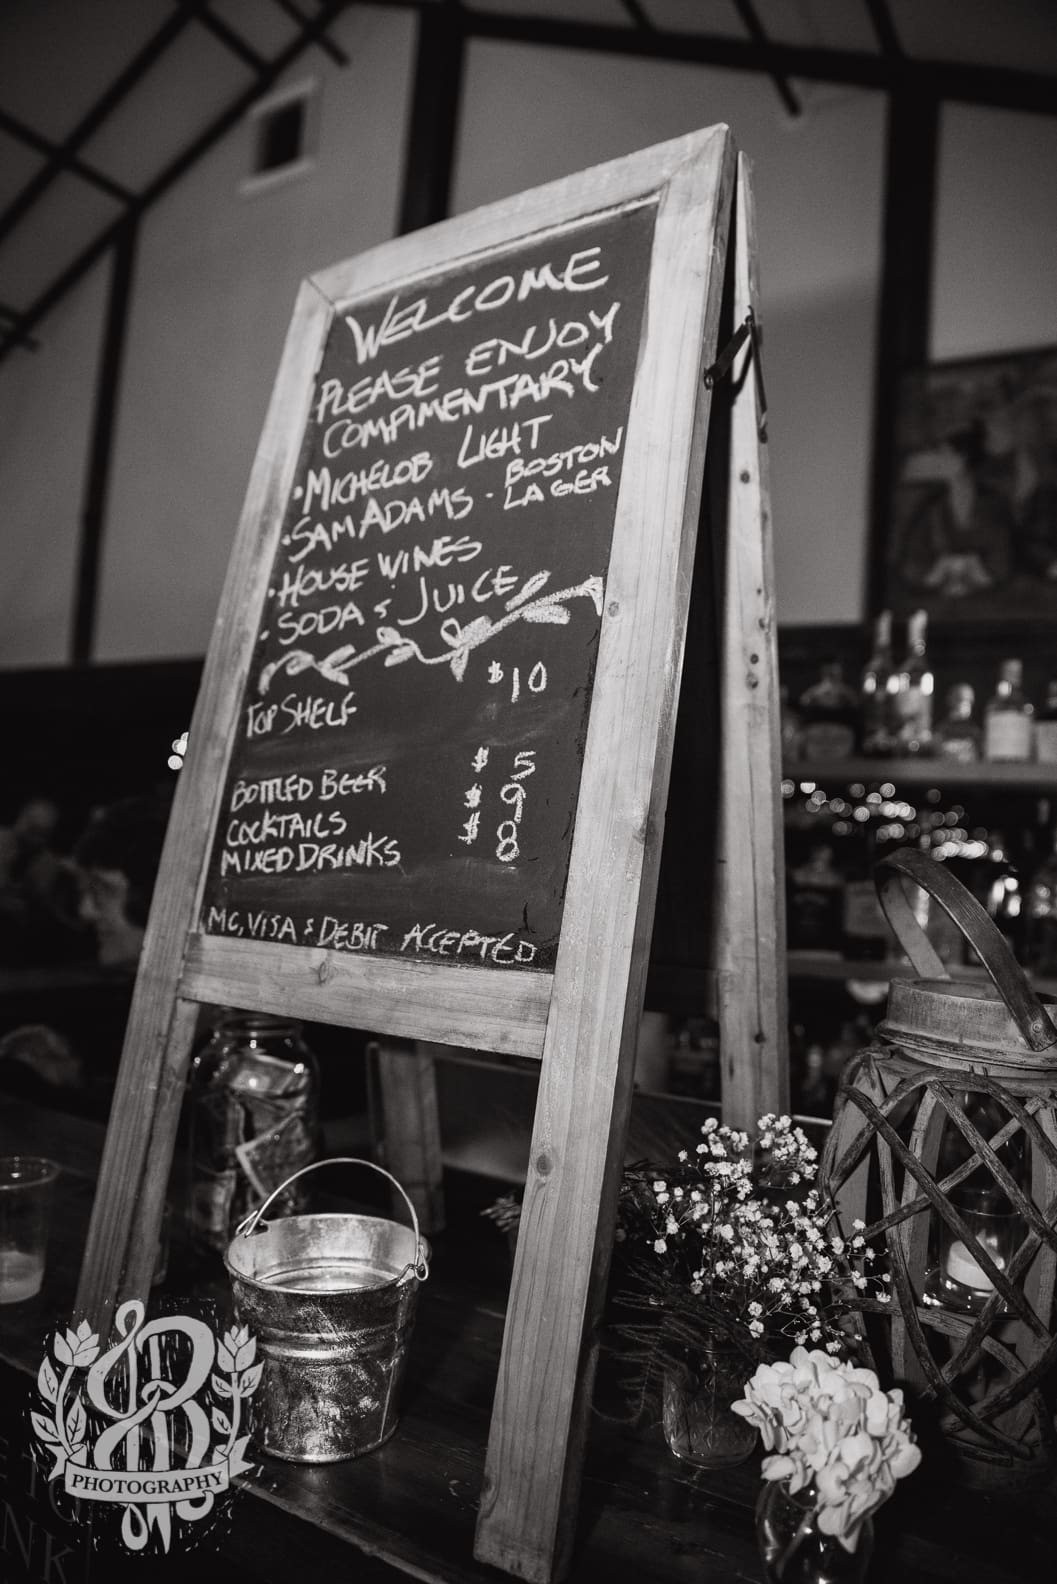 WELCOME
PLEASE ENJOY
COMPIMENTARY
• MICHELOB LIGHT
• SAM ADAMS - BOSTON
LAGER
• HOUSE WINES
• SODA & JUICE
TOP SHELF $10
BOTTLED BEER $ 5
COCKTAILS $ 9
MIXED DRINKS $ 8
MC, VISA & DEBIT ACCEPTED
PHOTOGRAPHY